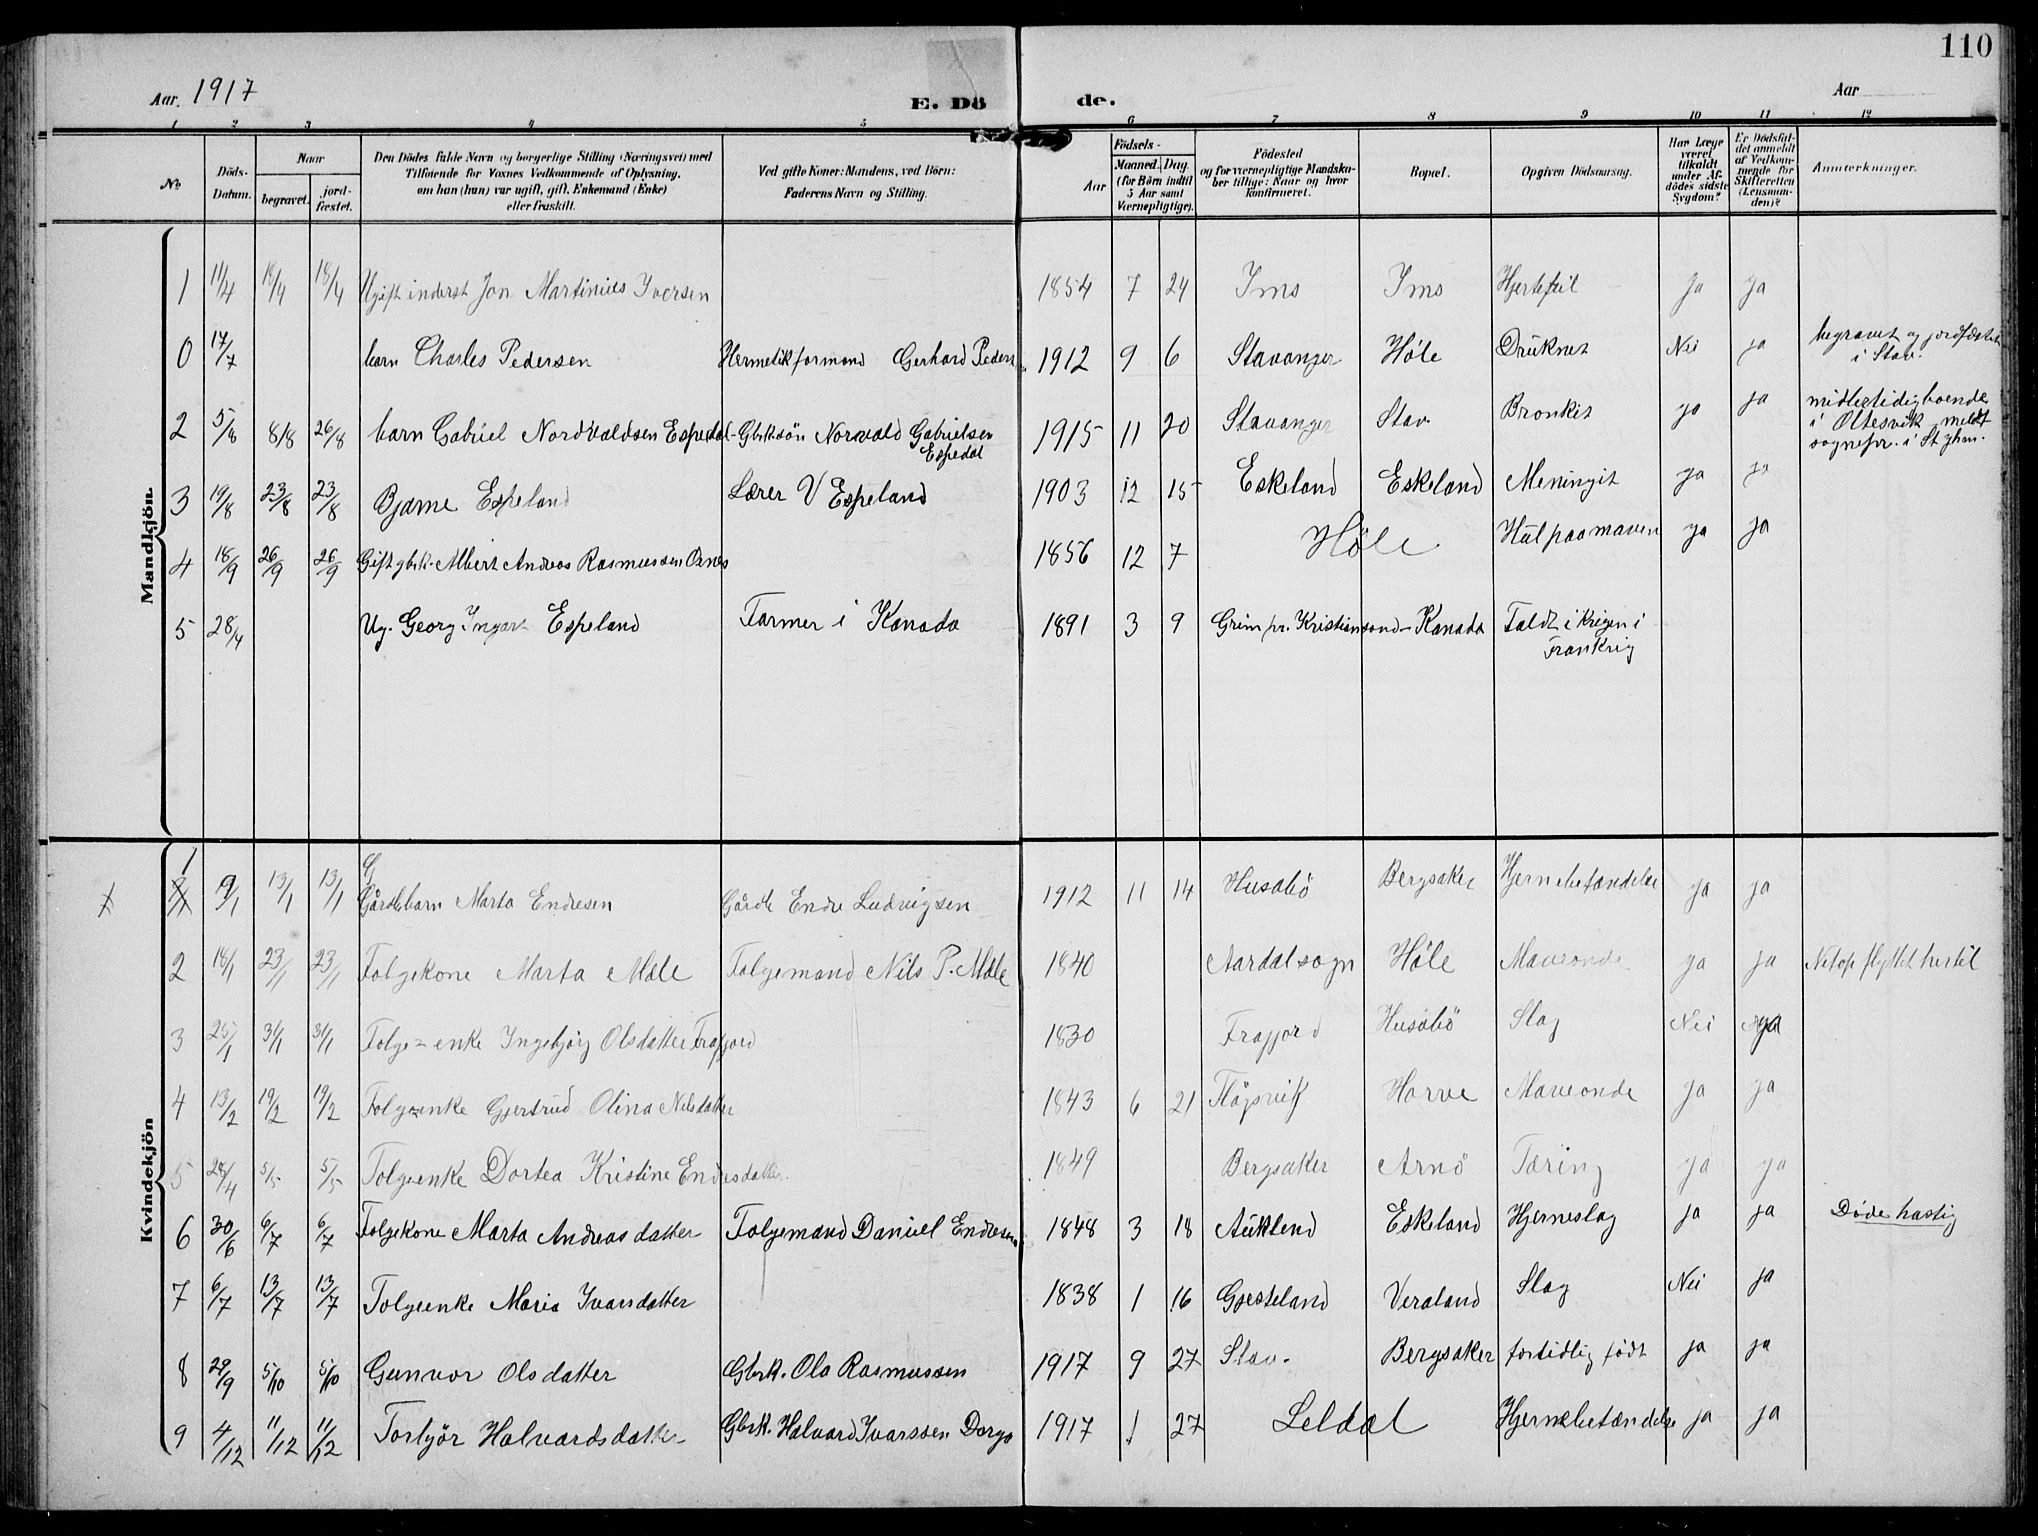 110
Aar. 1917 E. Dö de. Aar
1 2 3 4 5 6 7 8 9 10 11 12
No
Döds-Datum.
Naar
begravet.
jord-fæstet.
Den Dödes fulde Navn og borgerlige Stilling (Næringsvei) med
Tilföiende for Voxnes Vedkommende af Oplysning,
om han (hun) var ugift, gift, Enkemand (Enke)
eller fraskilt.
Ved gifte Koner: Mandens, ved Börn:
Faderens Navn og Stilling.
Födsels-
Aar
Maaned. Dag.
(for Börn indtil
5 Aar samt
Værnepligtige).
Födested
og for værnepligtige Mandskaber tillige: Naar og hvor konfirmeret.
Bopæl.
Opgiven Dödsaarsag.
Har Læge været tilkaldt under Afdödes sidste Sygdom?
Er Dödsfaldet anmeldt af Vedkommende for Skifteretten (Lensmanden)?
Anmærkninger.
Mandkjön.
1 11/4 18/4 18/4 Ugift inderst Jon Martinius Iversen 1854 7 24 Ims Ims Hjertefeil Ja Ja
0 17/7 barn Charles Pedersen Hermetikformand Gerhard Peders 1912 9 6 Stavanger Høle Druknet Nei ja begravet og jordfæstet i Stav.
2 5/8 8/8 26/8 barn Gabriel Nordvaldsen Espedal- Gbrk.sön Norvald Gabrielsen Espedal 1915 11 20 Stavanger Stav. Bronkit ja ja midlertidig boende i Oltesvik meldt sognepr. i St
3 19/8 23/8 23/8 Bjarne Espeland Lærer V Espeland 1903 12 15 Eskeland Eskeland Meningit ja ja
4 18/9 26/9 26/9 Gift gbrk. Albert Andreas Rasmussen 1856 12 7 Høle Hul paa maven ja ja
5 28/4 Ug. Georg Ingar Espeland Farmer i Kanada 1891 3 9 Grim pr. Kristiansand- Kanada Faldt i krigen i Frankrig
Kvindekjön
1 9/1 13/1 13/1 Gårdbbarn Marta Endresen Gårdb Endre Ludvigsen 1912 11 14 Husabö Bergsaker Hjernebetændelse ja ja
2 18/1 23/1 23/1 Folgekone Marta Mæle Folgemand Nils P. Mæle 1840 Aardal sogn Höle Maveonde ja ja Netop flyttet hertil
3 25/1 31/1 31/1 Folge=enke Ingebjörg Olsdatter Frafjord 1830 Frafjord Husabö Slag Nei ja
4 13/2 19/2 19/2 Folgeenke Gjertrud Olina Nilsdatter 1843 6 21 Fløysvik Horve Maveonde Ja ja
5 28/4 5/5 5/5 Folgeenke Dortea Kristine Endresdatter. 1849 Bergsaker Arnö Tæring ja ja
6 30/6 6/7 6/7 Folgekone Marta Andreasdatter Folgemand Daniel Endresen 1848 3 18 Auklend Eskeland Hjerneslag ja ja Døde hastig
7 6/7 13/7 13/7 Folgeenke Maria Ivarsdatter 1838 1 16 Gjesteland Veraland Slag Nei ja
8 29/9 5/10 5/10 Gunvor Olsdatter Gbrk. Ola Rasmussen 1917 9 27 Stav. Bergsaker fortidlig født ja ja
9 4/12 11/12 11/12 Torbjör Halvardsdatter Gbrk. Halvard Ivarssen Dorgo 1917 1 27 Leldal Hjernebetændelse ja ja